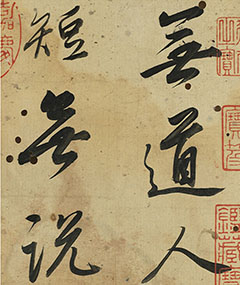 無道人
短無説